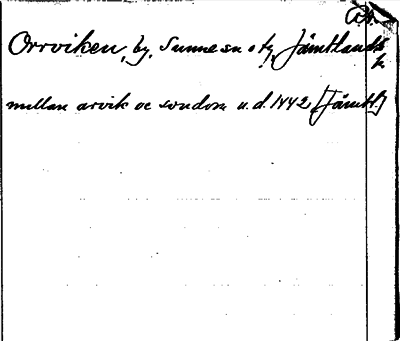 Orrviken, by, Sunne sn o tg, Jämtlands
l.
mellan orvik oc sundom u.d. 1442 [Jämtl.]